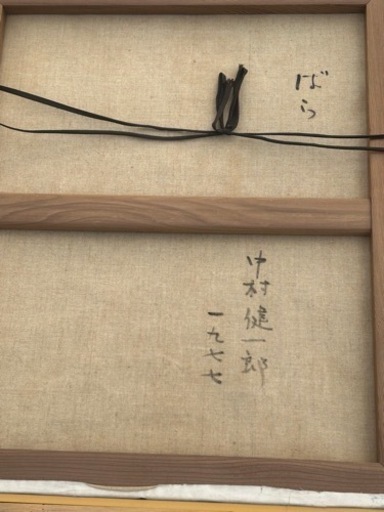 ばら
中村健一郎
一九七七